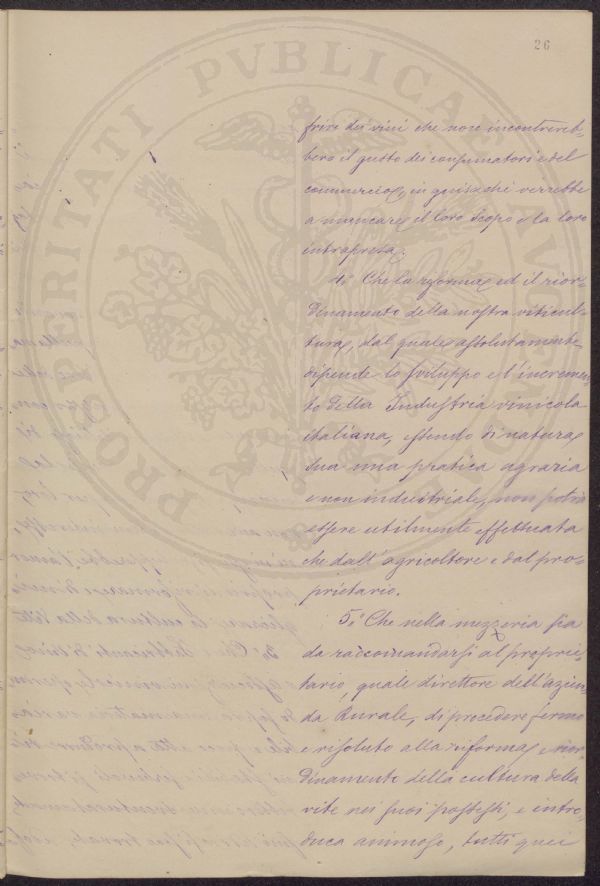 26
PROSPERITATI PVBLICAE AVGENDAE
frire dei vini che non incontrereb-
bero il gusto dei consumatori e del
commercio, in guisa che verrebbe
a mancare il loro scopo e la loro
intrapresa.
4.° Che la riforma ed il rior-
dinamento della nostra viticul-
tura, dal quale assolutamente
dipende lo sviluppo e l'incremen-
to della Industria vinicola
italiana, essendo di natura
sua una pratica agraria
e non industriale, non potrà
essere utilmente effettuata
che dall'agricoltore e dal pro-
prietario.
5.° Che nella mezzeria sia
da raccomandarsi al proprie-
tario, quale direttore dell'azien-
da Rurale, di procedere fermo
e risoluto alla riforma e rior-
dinamento della cultura della
vite nei suoi possessi, e intro-
duca animoso, tutti quei